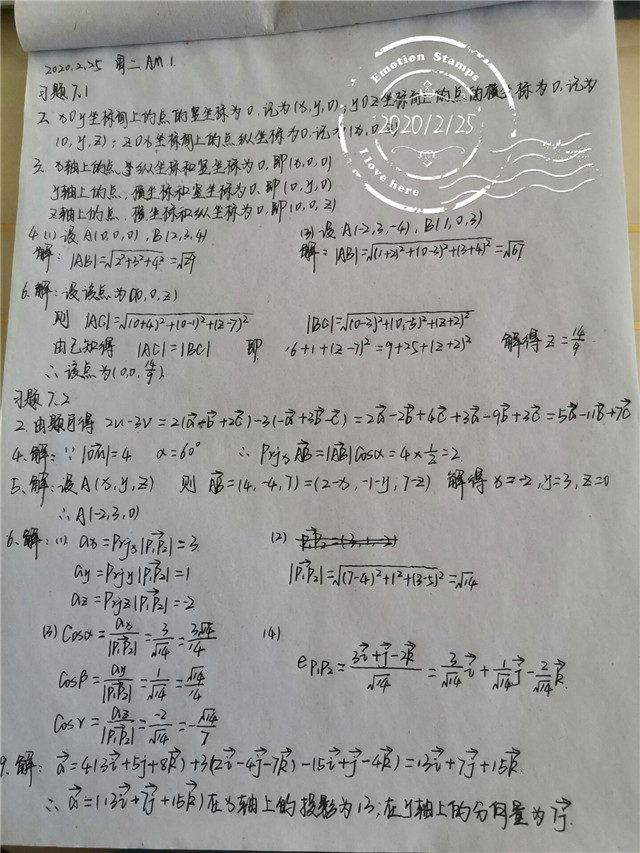 2020.2.25 周二 AM 1.
Emotion Stamps
2020/2/25
I love here
习题7.1
2. xOy坐标面上的点的竖坐标为0,记为(x,y,0), yOz坐标面上的点的横坐标为0,记为
(0,y,z); zOx坐标面上的点纵坐标为0,记
3. x轴上的点,纵坐标和竖坐标为0,即(x,0,0)
y轴上的点,横坐标和竖坐标为0,即(0,y,0)
z轴上的点,横坐标和纵坐标为0,即(0,0,z)
4.(1)设A(0,0,0),B(2,3,4)
解: |AB|=√(2²+3²+4²)=√29
(3)设A(-2,3,-4),B(1,0,3)
解: |AB|=√((1+2)²+(0-3)²+(3+4)²)=√67
6.解:设该点为C(0,0,z)
则 |AC|=√((0+4)²+(0-1)²+(z-7)²) |BC|=√((0-3)²+(0-5)²+(z+2)²)
由已知得 |AC|=|BC| 即 16+1+(z-7)²=9+25+(z+2)² 解得z=14/9
∴该点为(0,0,14/9).
习题7.2
2.由题可得 2u-3v=2(a⃗-b⃗+2c⃗)-3(-a⃗+3b⃗-c⃗)=2a⃗-2b⃗+4c⃗+3a⃗-9b⃗+3c⃗=5a⃗-11b⃗+7c⃗
4.解:∵|OM⃗|=4 α=60° ∴PrjxAB⃗=|AB⃗|cosα=4×1/2=2.
5.解:设A(x,y,z) 则 AB⃗=(4,-4,7)=(2-x,-1-y,7-z) 解得x=-2,y=3,z=0
∴A(-2,3,0)
6.解:(1) ax=Prjx|P₁P₂⃗|=3.
ay=Prjy|P₁P₂⃗|=1
az=Prjz|P₁P₂⃗|=-2
(2) P₁P₂⃗=(3,1,-2)
|P₁P₂⃗|=√((7-4)²+1²+(3-5)²)=√14
(3) cosα=ax/|P₁P₂⃗|=3/√14=3√14/14
cosβ=ay/|P₁P₂⃗|=1/√14=√14/14
cosγ=az/|P₁P₂⃗|=-2/√14=-√14/7
(4)
eP₁P₂=(3i⃗+j⃗-2k⃗)/√14=3/√14 i⃗+1/√14 j⃗-2/√14 k⃗.
9.解: a⃗=4(3i⃗+5j+8k⃗)+3(2i⃗-4j⃗-7k⃗)-(5i⃗+j⃗-4k⃗)=13i⃗+7j⃗+15k⃗.
∴a⃗=(13i⃗+7j⃗+15k⃗)在x轴上的投影为13,在y轴上的分向量为7j⃗.